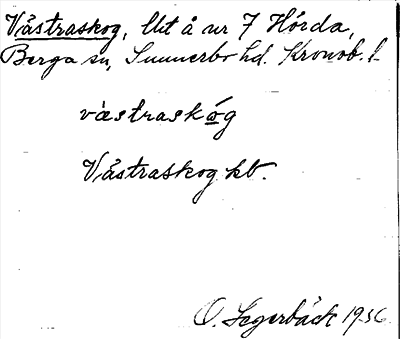 Västraskog, lht å nr 7 Hörda,
Berga sn, Sunnerbo hd. Kronob. l.
västraskóg
Västraskog kb.
O. Segerbäck 1936